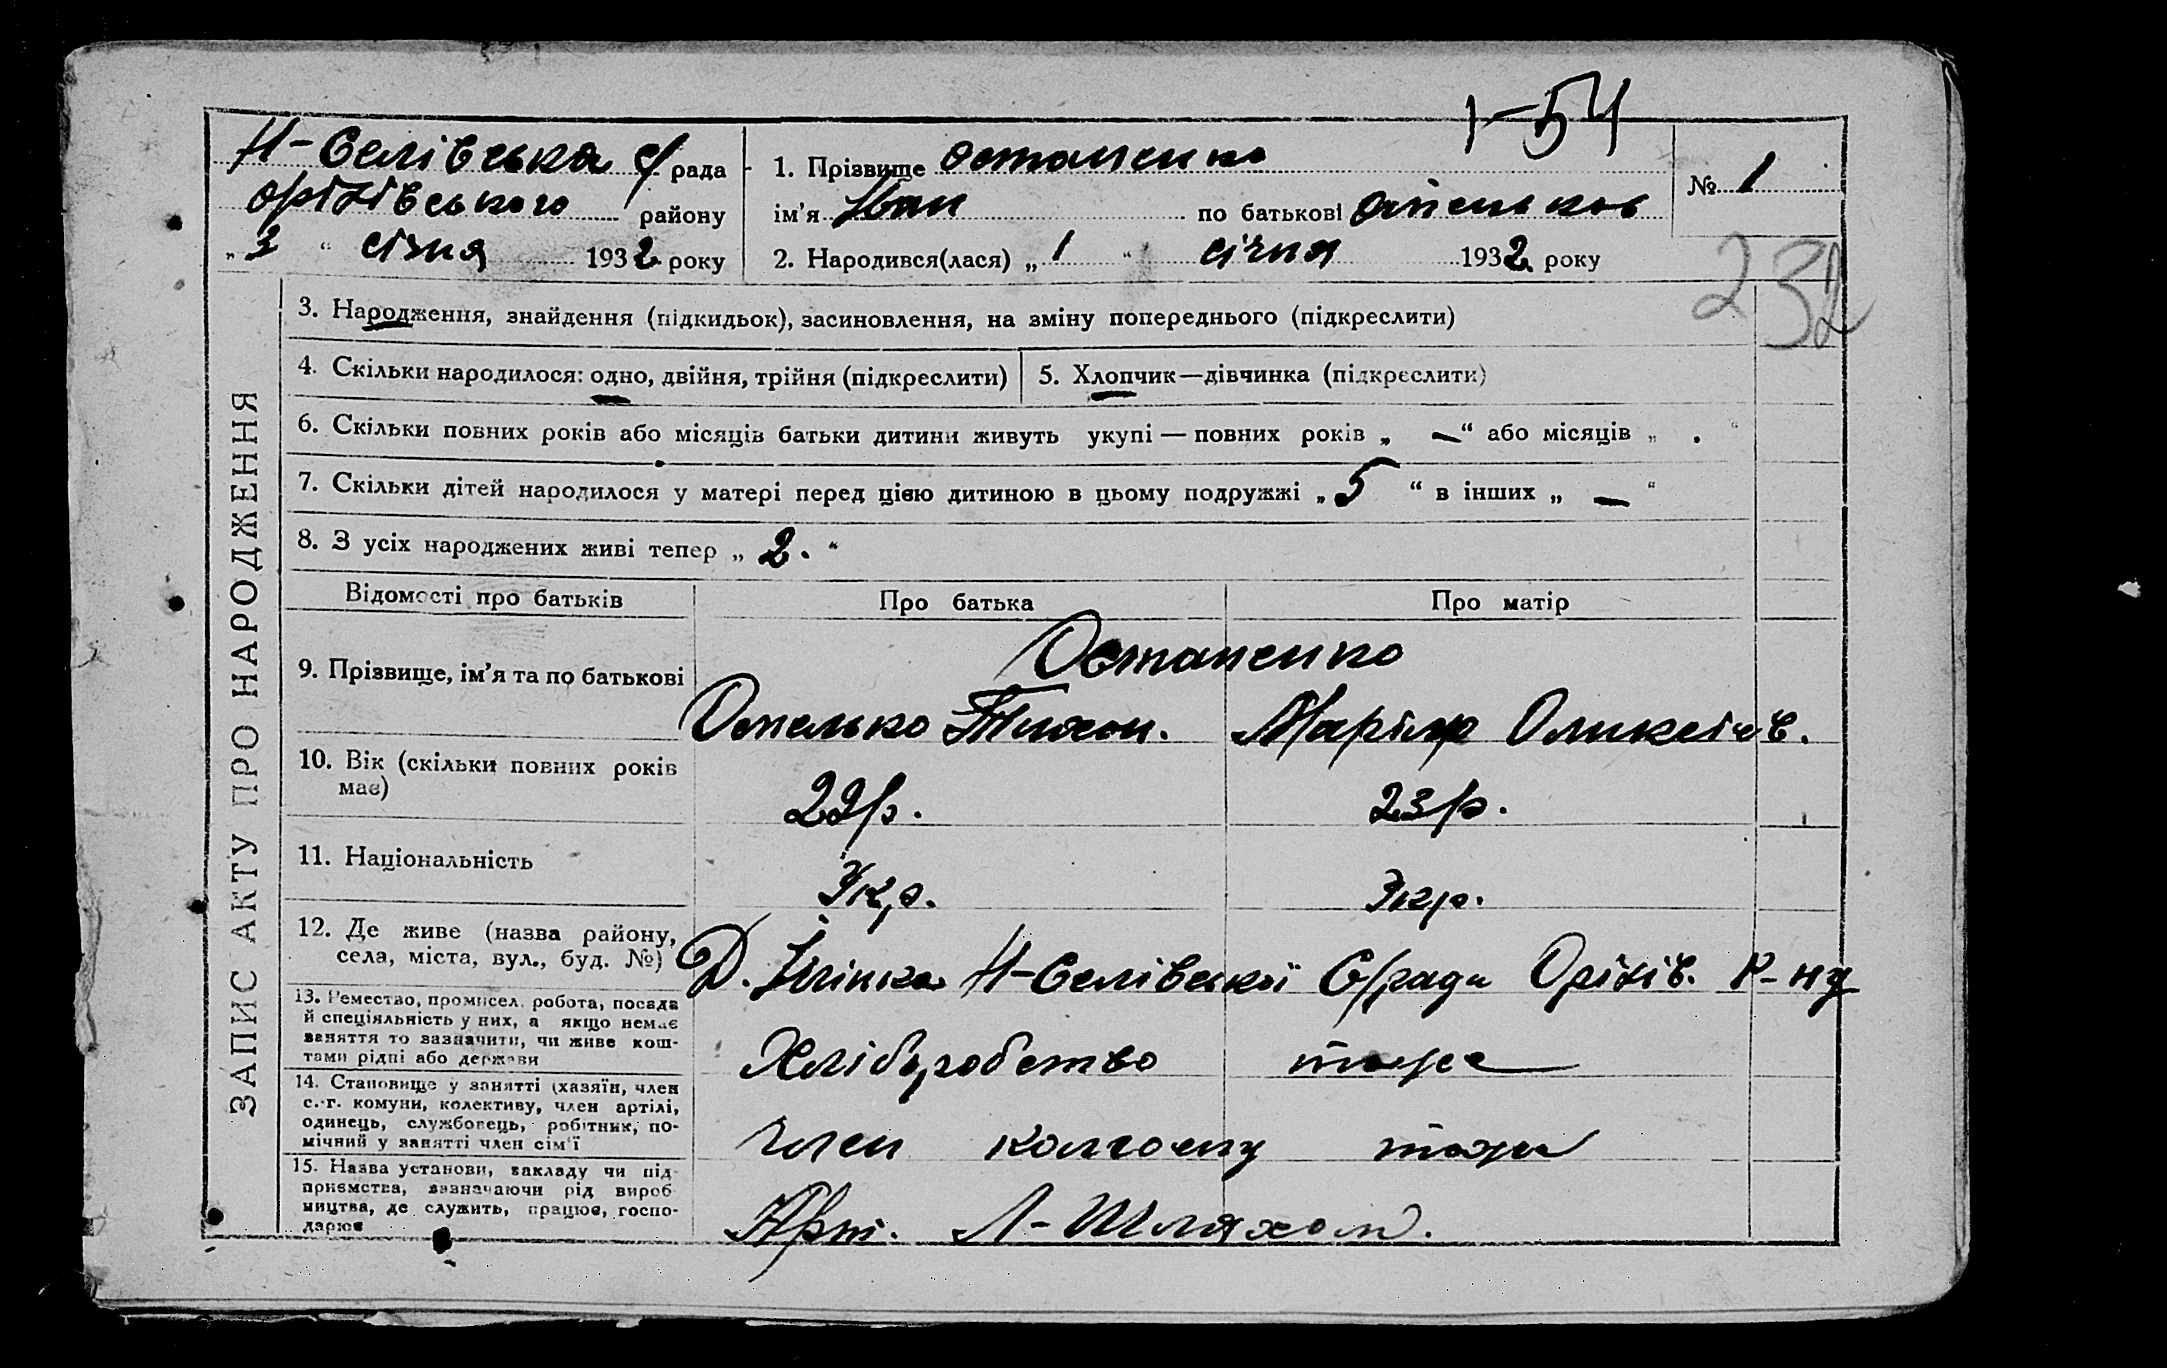 1-54
Н-Селівська с/рада
Оріхівського району
„3“ січня 1932 року
1. Прізвище Остапенко
ім’я Іван по батькові
2. Народився(лася) „1“ січня 1932 року
№ 1
232
ЗАПИС АКТУ ПРО НАРОДЖЕННЯ
3. Народження, знайдення (підкидьок), засиновлення, на зміну попереднього (підкреслити)
4. Скільки народилося: одно, двійня, трійня (підкреслити)
5. Хлопчик—дівчинка (підкреслити)
6. Скільки повних років або місяців батьки дитини живуть укупі — повних років „ — “ або місяців „ . “
7. Скільки дітей народилося у матері перед цією дитиною в цьому подружжі „ 5 “ в інших „ — “
8. З усіх народжених живі тепер „ 2. “
Відомості про батьків
Про батька
Про матір
9. Прізвище, ім’я та по батькові
Остапенко
Омелько Тихон.
Марія Оликсіїв.
10. Вік (скільки повних років
має)
22р.
23р.
11. Національність
Укр.
Укр.
12. Де живе (назва району,
села, міста, вул., буд. №)
Н-Селівської С/ради Оріхів. Р-ну
13. Ремество, промисел, робота, посада
й спеціяльність у них, а якщо немає
заняття то зазначити, чи живе кош-
тами рідні або держави
Хліборобство
теже
14. Становище у занятті (хазяїн, член
с.-г. комуни, колективу, член артілі,
одинець, службовець, робітник, по-
мічний у занятті член сім’ї
Член колгоспу
теже
15. Назва установи, закладу чи під-
приємства, зазначаючи рід вироб-
ництва, де служить, працює, госпо-
дарює
Арт. Л-Шляхом.